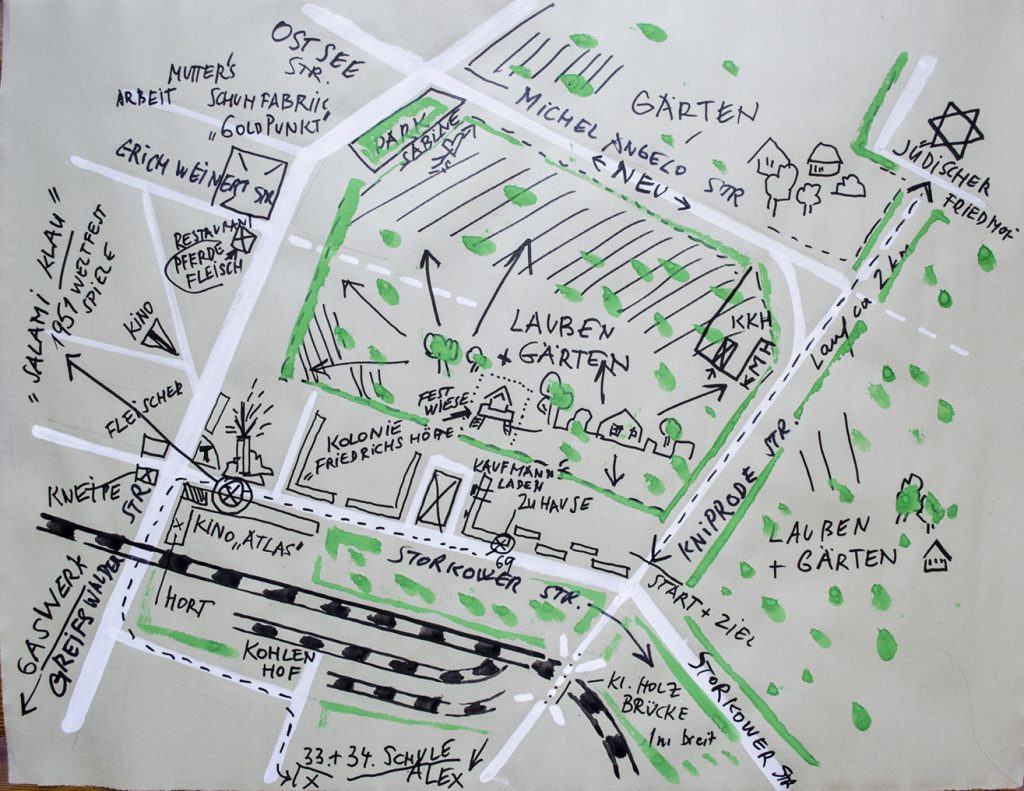 OSTSEE
STR.
MUTTER'S
ARBEIT
SCHUHFABRIK
"GOLDPUNKT"
ERICH WEINERT STR
PARK
SABINE
MICHEL ANGELO STR
NEU
GÄRTEN
JÜDISCHER
FRIEDHOF
"SALAMI KLAU"
1951 WELTFEST
SPIELE
RESTAURANT
PFERDE
FLEISCH
KINO
FLEISCHER
KNEIPE
LAUBEN
+ GÄRTEN
KKH
Lauf ca 2 km
FEST
WIESE
KOLONIE
"FRIEDRICHSHÖHE"
KAUFMANN
LADEN
ZU HAUSE
69
KINO "ATLAS"
HORT
STORKOWER STR.
KNIPRODE STR.
START + ZIEL
LAUBEN
+ GÄRTEN
GASWERK
GREIFSWALDER
STR
KOHLEN
HOF
KL. HOLZ
BRÜCKE
1m breit
STORKOWER STR
33.+ 34. SCHULE
X
ALEX